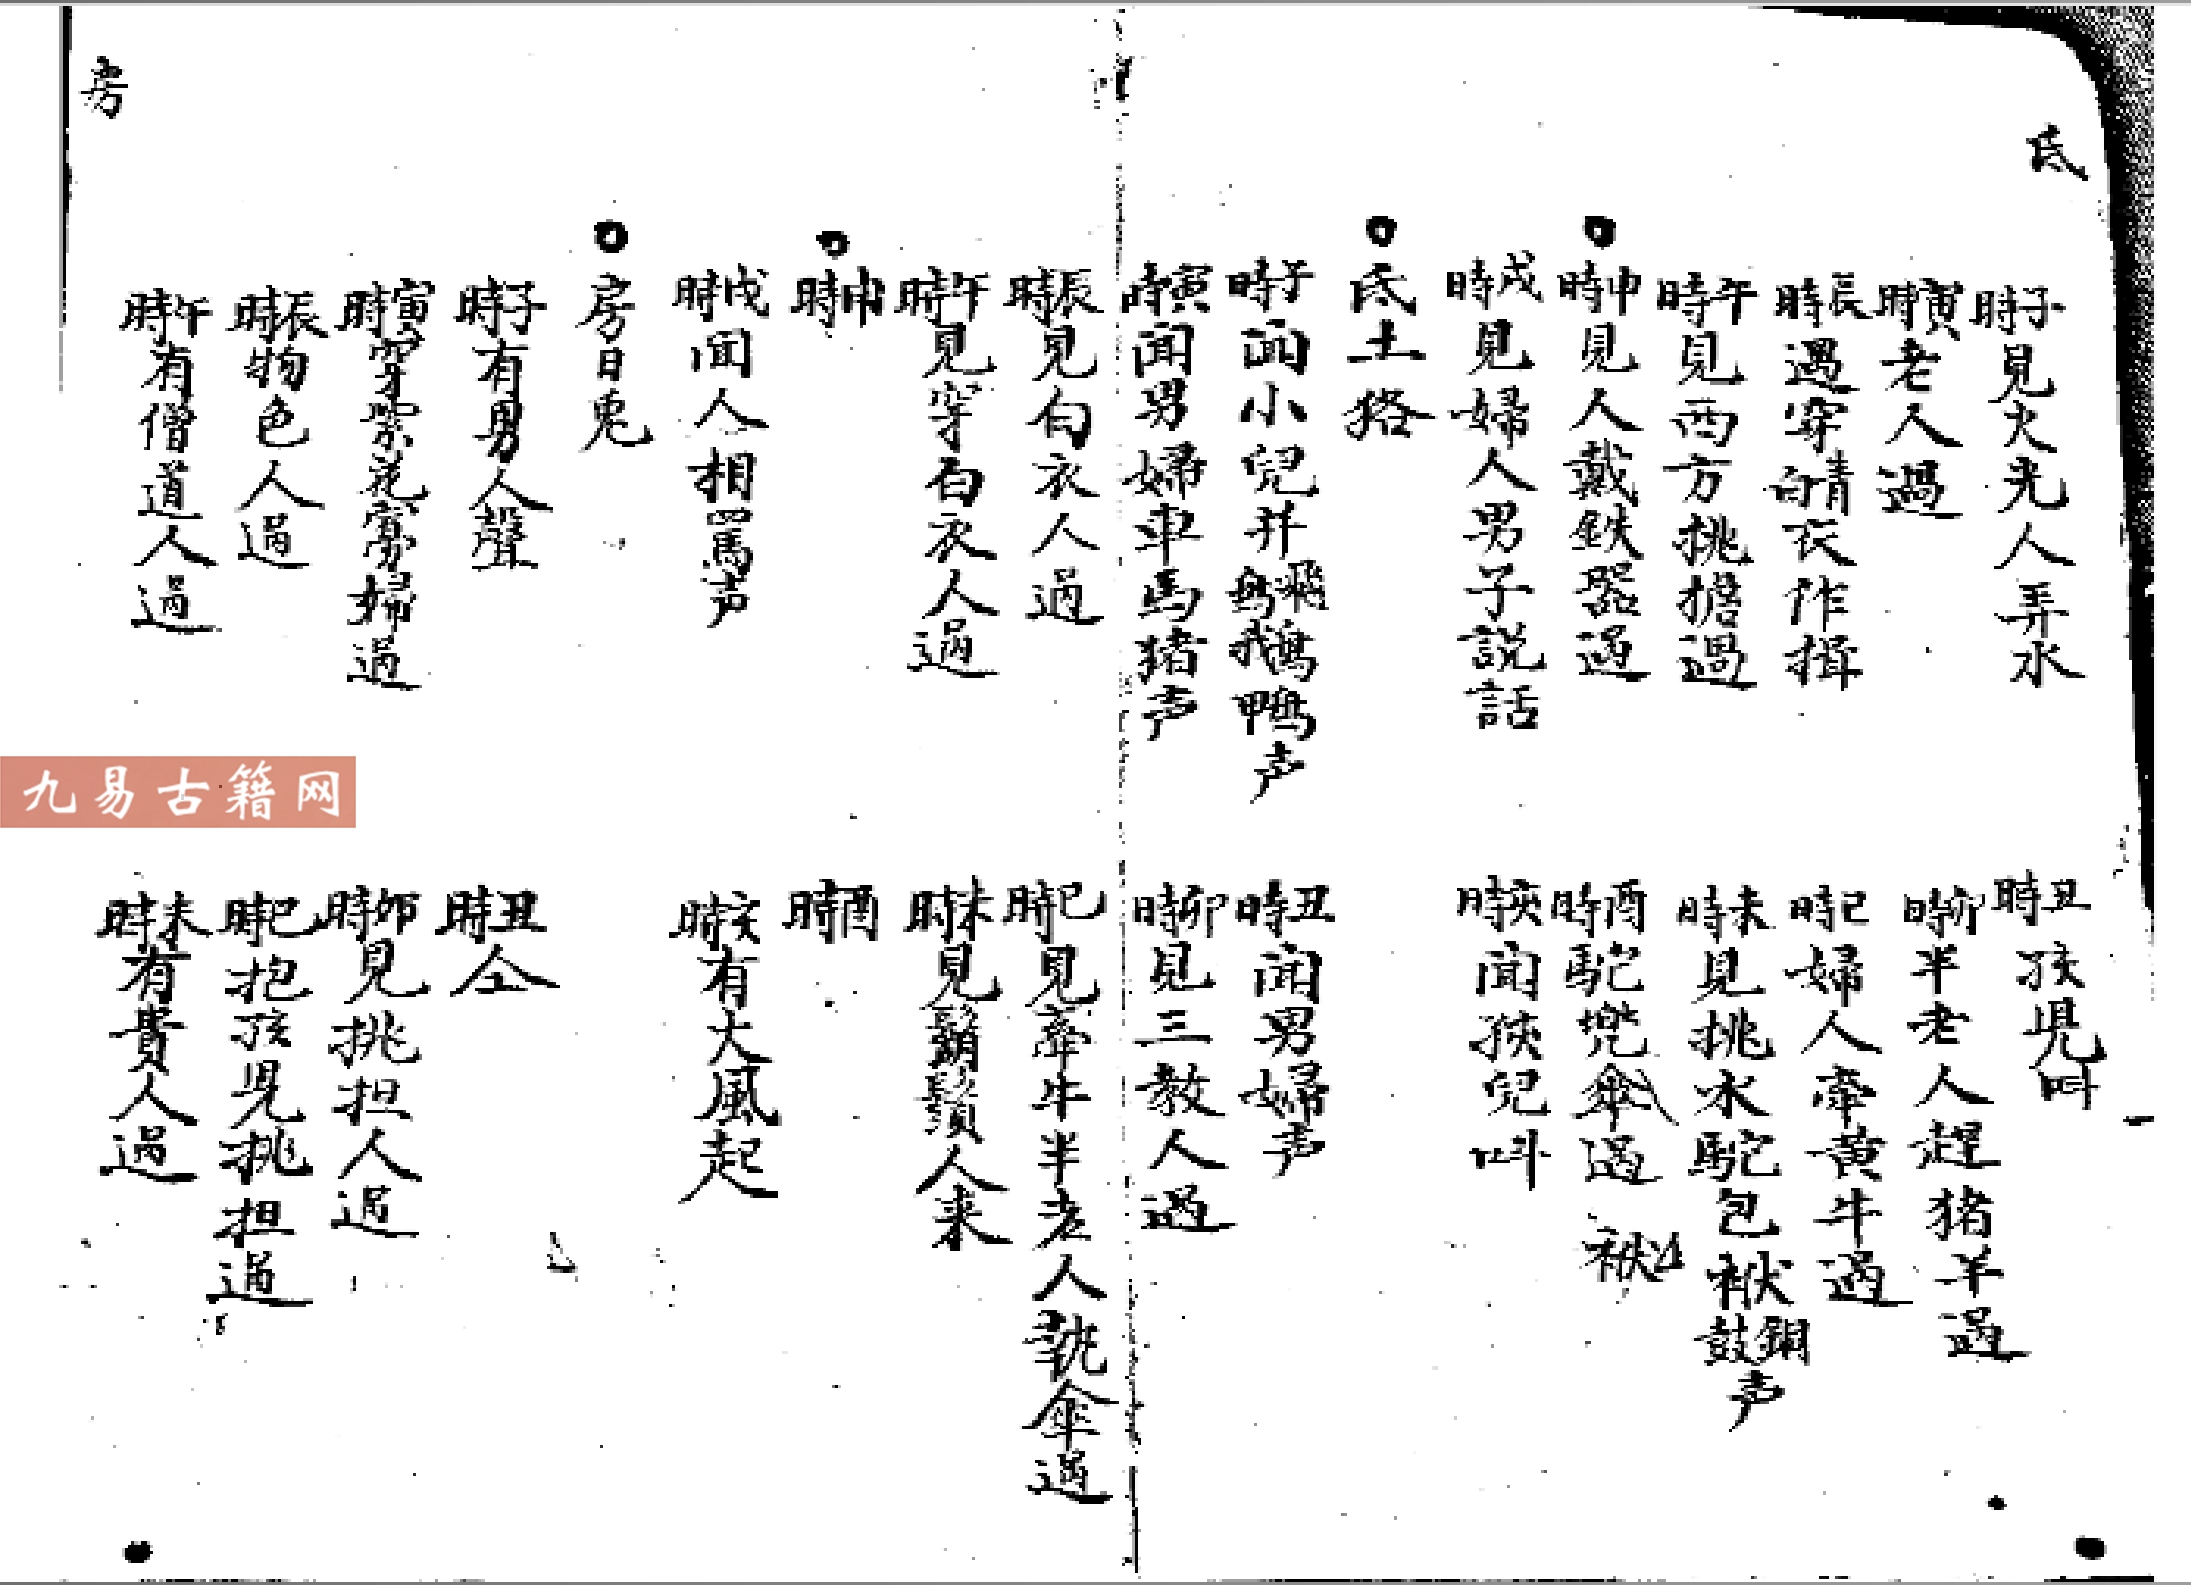 氐
子時見火光人弄水
丑時孩児叫
寅時老人過
卯時半老人趕猪羊過
辰時遇穿青白衣作揖
巳時婦人牽黄牛過
午時見西方挑擔過
未時見挑水駝包袱銅鼓声
申時見人戴鉄器過
酉時駝兠傘過
袱
戌時見婦人男子説話
亥時聞孩兒叫
氐土狢
子時聞小兒并飛鳥鵝鴨声
丑時聞男婦声
寅時聞男婦車馬猪声
卯時見三教人過
辰時見白衣人過
巳時見牽牛半老人執傘過
午時見穿白衣人過
未時見鬍鬚人来
申時
酉時
戌時聞人相罵声
亥時有大風起
房日兎
子時有男人聲
丑時仝
寅時穿紫花寡婦過
卯時見挑担人過
辰時物色人過
巳時抱孩児挑担過
午時有僧道人過
未時有貴人過
房
九易古籍网